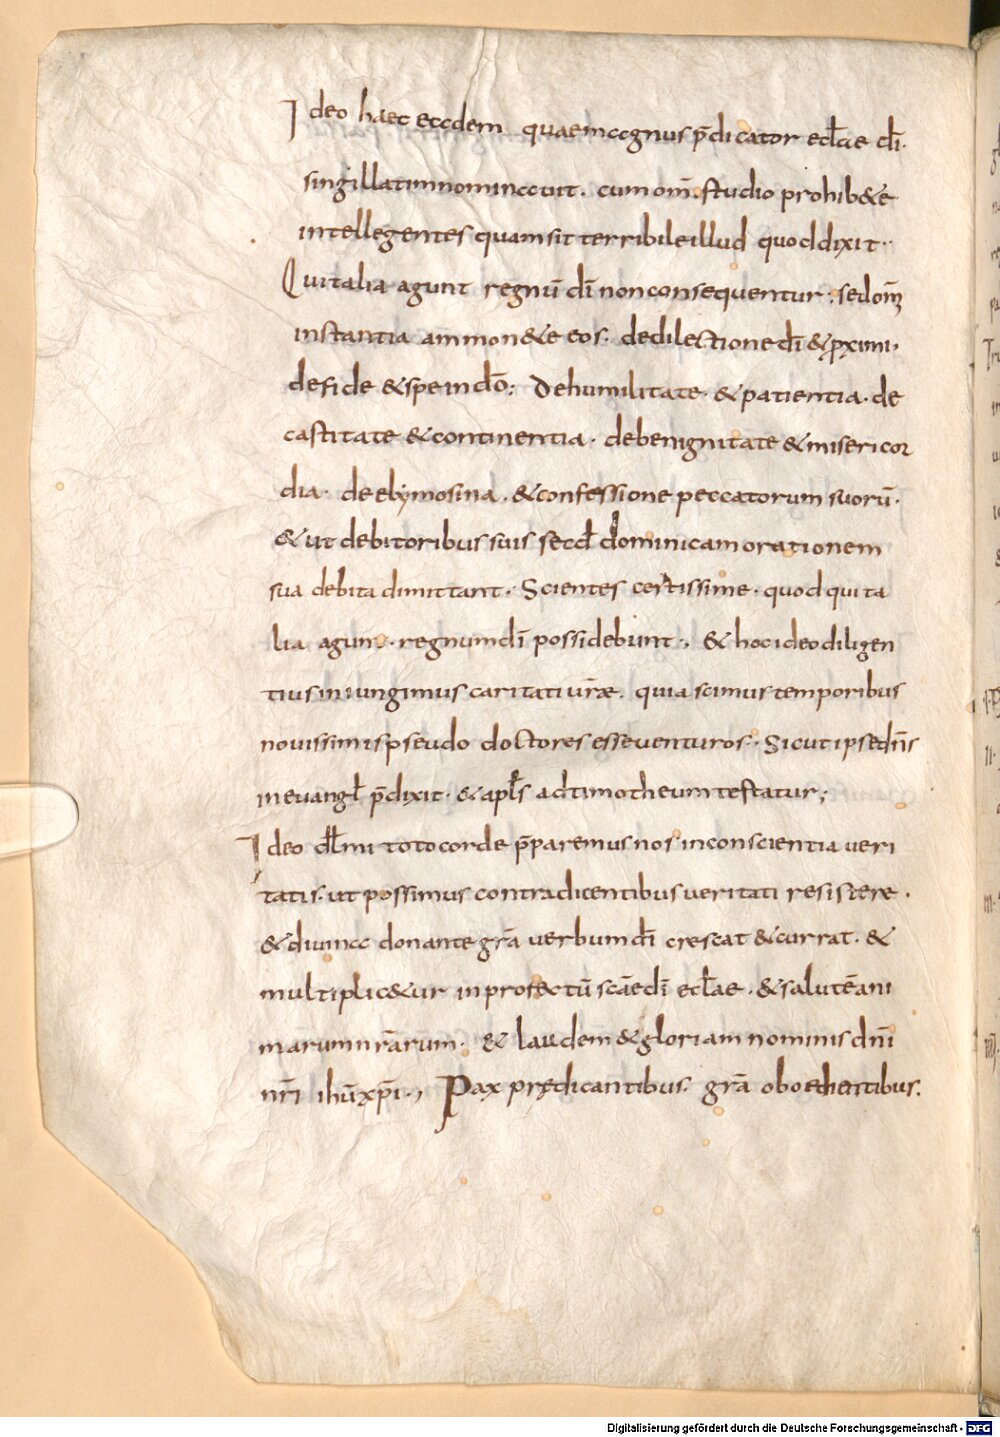 Ideo haec eadem quae magnus p̄dicator eclꝉae dī·
singillatim nominauit. cum om̄. studio prohib&e
intellegentes quam sit terribile illud quod dixit··
Qui talia agunt regnū dī non consequentur·, sed om̄
instantia ammon&e eos. de dilectione dī & p̄ximi,
de fide & spe in dō: De humilitate & patientia. de
castitate & continentia. de benignitate & misericor
dia. de elymosina. & confessione peccatorum suorū.
& ut debitoribus suis secd̄ dominicam orationem
sua debita dimittant·. Scientes certissime. quod qui ta
lia agunt. regnum dī possidebunt·, & hoc ideo diligen
tius iniungimus caritati ur̄ae. quia scimus temporibus
nouissimis pseudo doctores esse venturos·. Sicut ipse dn̄s
in euangꝉ p̄dixit. & apꝉs ad timotheum testatur;
Ideo dꝉꝉmi toto corde p̄paremus nos in conscientia veri
tatis. ut possimus contradicentibus veritati resistere.
& diuina donante gr̄a verbum dī crescat & currat. &
multiplic&ur in profectū sc̄ae dī eclꝉae. & salutē ani
marum nr̄arum. & laudem & gloriam nominis dn̄i
nr̄i ihū xp̄i·, Pax prędicantibus. gr̄a oboedientibus.
Digitalisierung gefördert durch die Deutsche Forschungsgemeinschaft - DFG